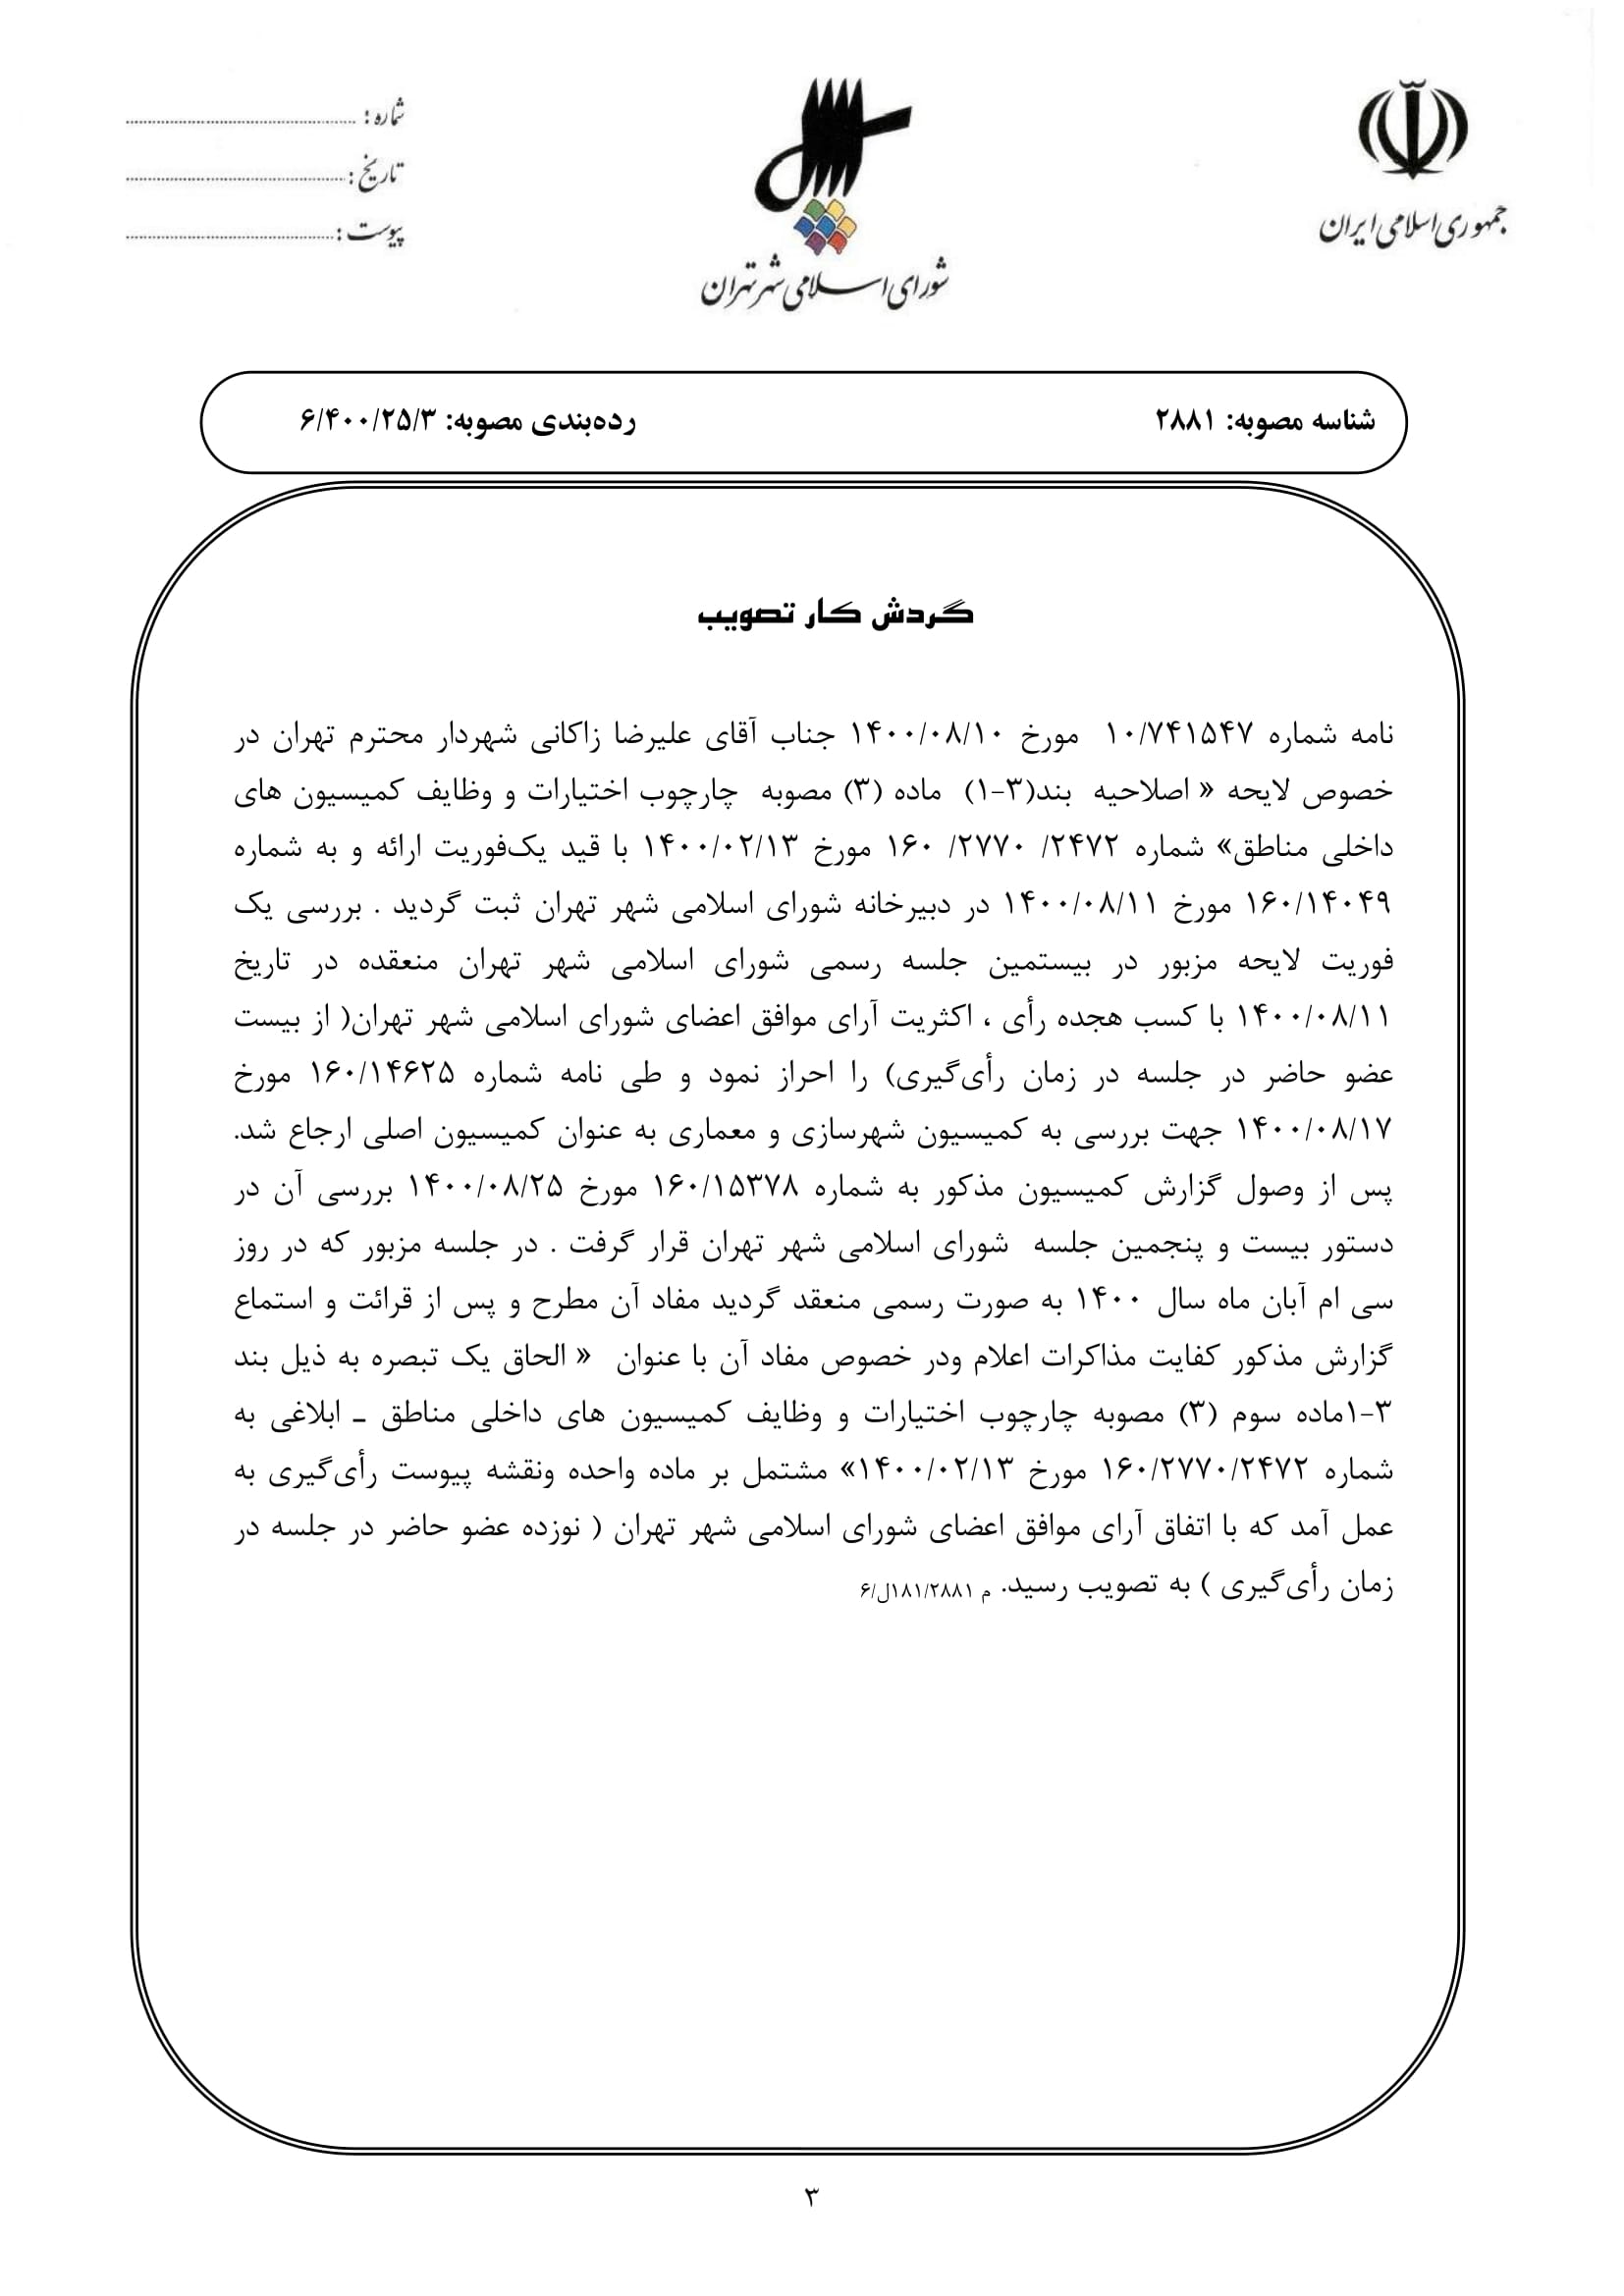 جمهوری اسلامی ایران
شورای اسلامی شهر تهران
شماره : ................................
تاریخ : ................................
پیوست : ................................
شناسه مصوبه: ۲۸۸۱ رده‌بندی مصوبه: ۶/۴۰۰/۲۵/۳
گردش کار تصویب
نامه شماره ۱۰/۷۴۱۵۴۷ مورخ ۱۴۰۰/۰۸/۱۰ جناب آقای علیرضا زاکانی شهردار محترم تهران در
خصوص لایحه « اصلاحیه بند(۳-۱) ماده (۳) مصوبه چارچوب اختیارات و وظایف کمیسیون های
داخلی مناطق» شماره ۲۴۷۲/ ۲۷۷۰/ ۱۶۰ مورخ ۱۴۰۰/۰۲/۱۳ با قید یک‌فوریت ارائه و به شماره
۱۶۰/۱۴۰۴۹ مورخ ۱۴۰۰/۰۸/۱۱ در دبیرخانه شورای اسلامی شهر تهران ثبت گردید . بررسی یک
فوریت لایحه مزبور در بیستمین جلسه رسمی شورای اسلامی شهر تهران منعقده در تاریخ
۱۴۰۰/۰۸/۱۱ با کسب هجده رأی ، اکثریت آرای موافق اعضای شورای اسلامی شهر تهران( از بیست
عضو حاضر در جلسه در زمان رأی‌گیری) را احراز نمود و طی نامه شماره ۱۶۰/۱۴۶۲۵ مورخ
۱۴۰۰/۰۸/۱۷ جهت بررسی به کمیسیون شهرسازی و معماری به عنوان کمیسیون اصلی ارجاع شد.
پس از وصول گزارش کمیسیون مذکور به شماره ۱۶۰/۱۵۳۷۸ مورخ ۱۴۰۰/۰۸/۲۵ بررسی آن در
دستور بیست و پنجمین جلسه شورای اسلامی شهر تهران قرار گرفت . در جلسه مزبور که در روز
سی ام آبان ماه سال ۱۴۰۰ به صورت رسمی منعقد گردید مفاد آن مطرح و پس از قرائت و استماع
گزارش مذکور کفایت مذاکرات اعلام ودر خصوص مفاد آن با عنوان « الحاق یک تبصره به ذیل بند
۳-۱ماده سوم (۳) مصوبه چارچوب اختیارات و وظایف کمیسیون های داخلی مناطق ـ ابلاغی به
شماره ۱۶۰/۲۷۷۰/۲۴۷۲ مورخ ۱۴۰۰/۰۲/۱۳» مشتمل بر ماده واحده ونقشه پیوست رأی‌گیری به
عمل آمد که با اتفاق آرای موافق اعضای شورای اسلامی شهر تهران ( نوزده عضو حاضر در جلسه در
زمان رأی‌گیری ) به تصویب رسید. م ۱۸۱/۲۸۸۱ل/۶
۳